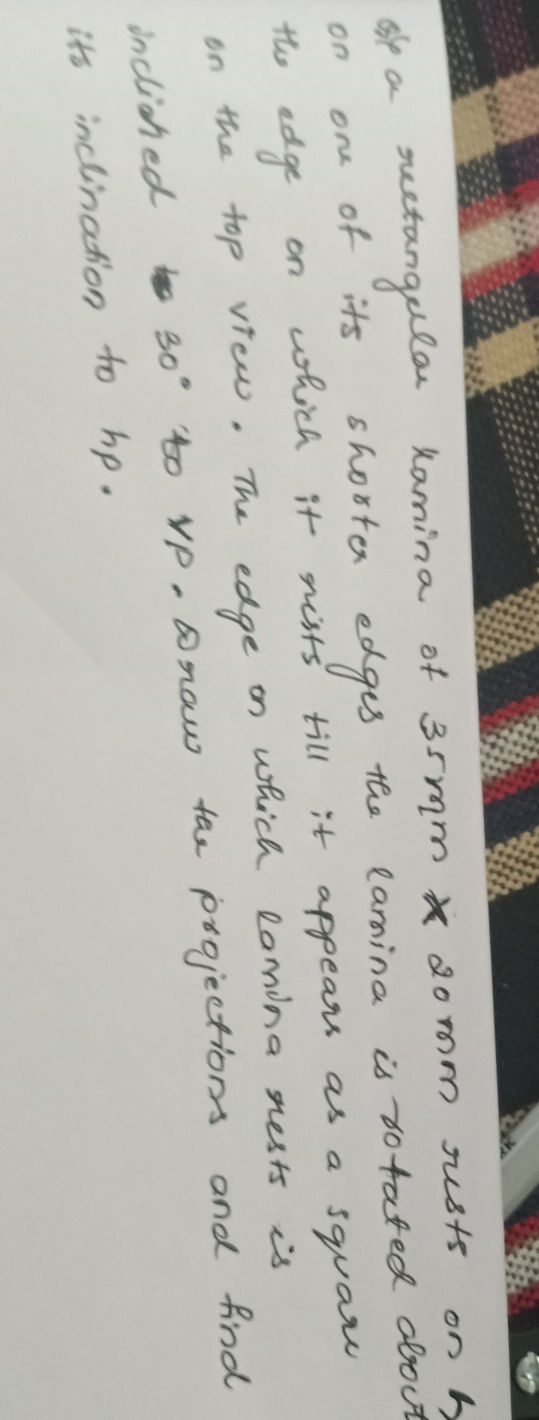 a rectangular lamina of 35mm x 20mm rests on h
on one of its shorter edges the lamina is rotated about
the edge on which it rests till it appears as a square
on the top view. The edge on which lamina rests is
inclined 30° to VP. Draw the projections and find
its inclination to hp.